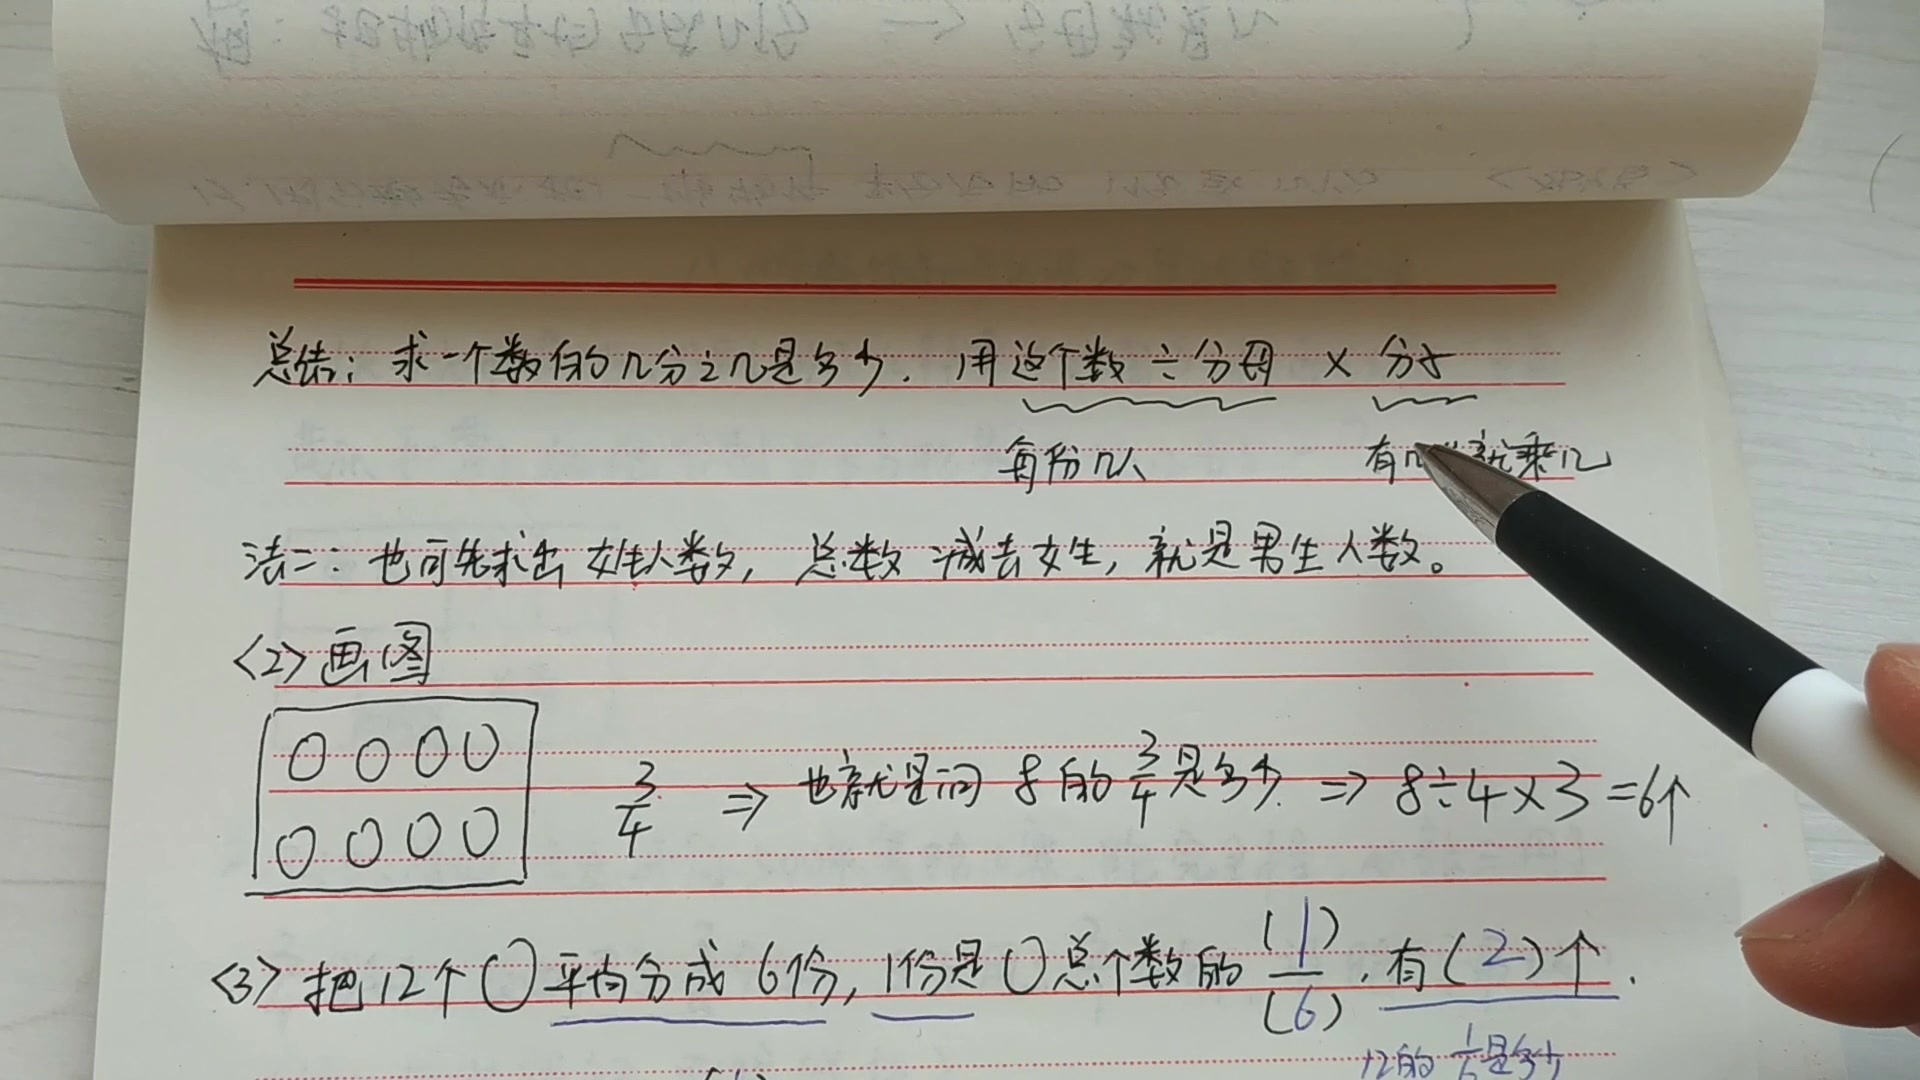 总结：求一个数的几分之几是多少．用这个数÷分母 × 分子
每份几人 有几 就乘几
法二：也可先求出 女生人数，总数 减去女生，就是男生人数。
<2> 画图
3/4 ⇒ 也就是问 8的 3/4 是多少. ⇒ 8÷4×3=6个
<3> 把12个○平均分成 6份，1份是○总个数的 (1)/(6)．有(2)个．
12的 1/6是多少